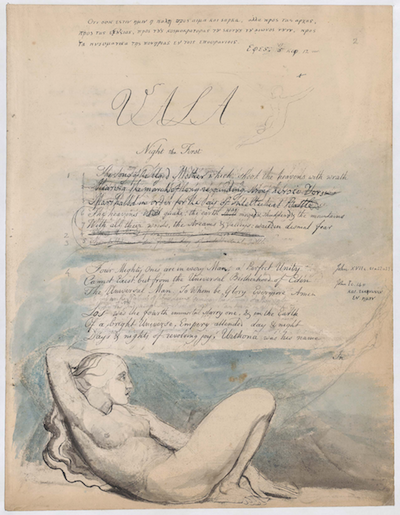 Οτι ουκ εστιν ημιν η παλη προς αιμα και σαρκα, αλλα προς τας αρχας,
προς τας εξουσιας, προς τους κοσμοκρατορας του σκοτους του αιωνος τουτου, προς
τα πνευματικα της πονηριας εν τοις επουρανιοις.
12
VALA
Night the First
The Song of the Aged Mother which shook the heavens with wrath
Hearing the march of long resounding strong heroic Verse
Marshalld in order for the day of Intellectual Battle
quake: the earth
With all their woods, the streams & valleys: in dismal fear
Four Mighty Ones are in every Man; a Perfect Unity
Cannot Exist. but from the Universal Brotherhood of Eden
The Universal Man. To Whom be Glory Evermore Amen
John XVII
John I
Los was the fourth immortal starry one, & in the Earth
Of a bright Universe, Empery attended day & night
Days & nights of revolving joy, Urthona was his name